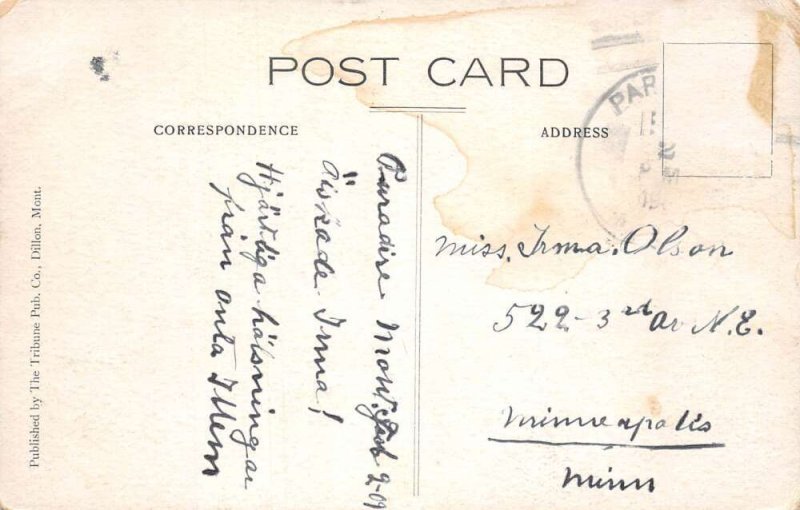 POST CARD
CORRESPONDENCE
ADDRESS
PAR
Paradise Mont. Feb 2-09
Älskade Irma!
Hjärtliga hälsningar
från
Miss. Irma. Olson
522-3rd Av N.E.
Minneapolis
Minn
Published by The Tribune Pub. Co., Dillon, Mont.